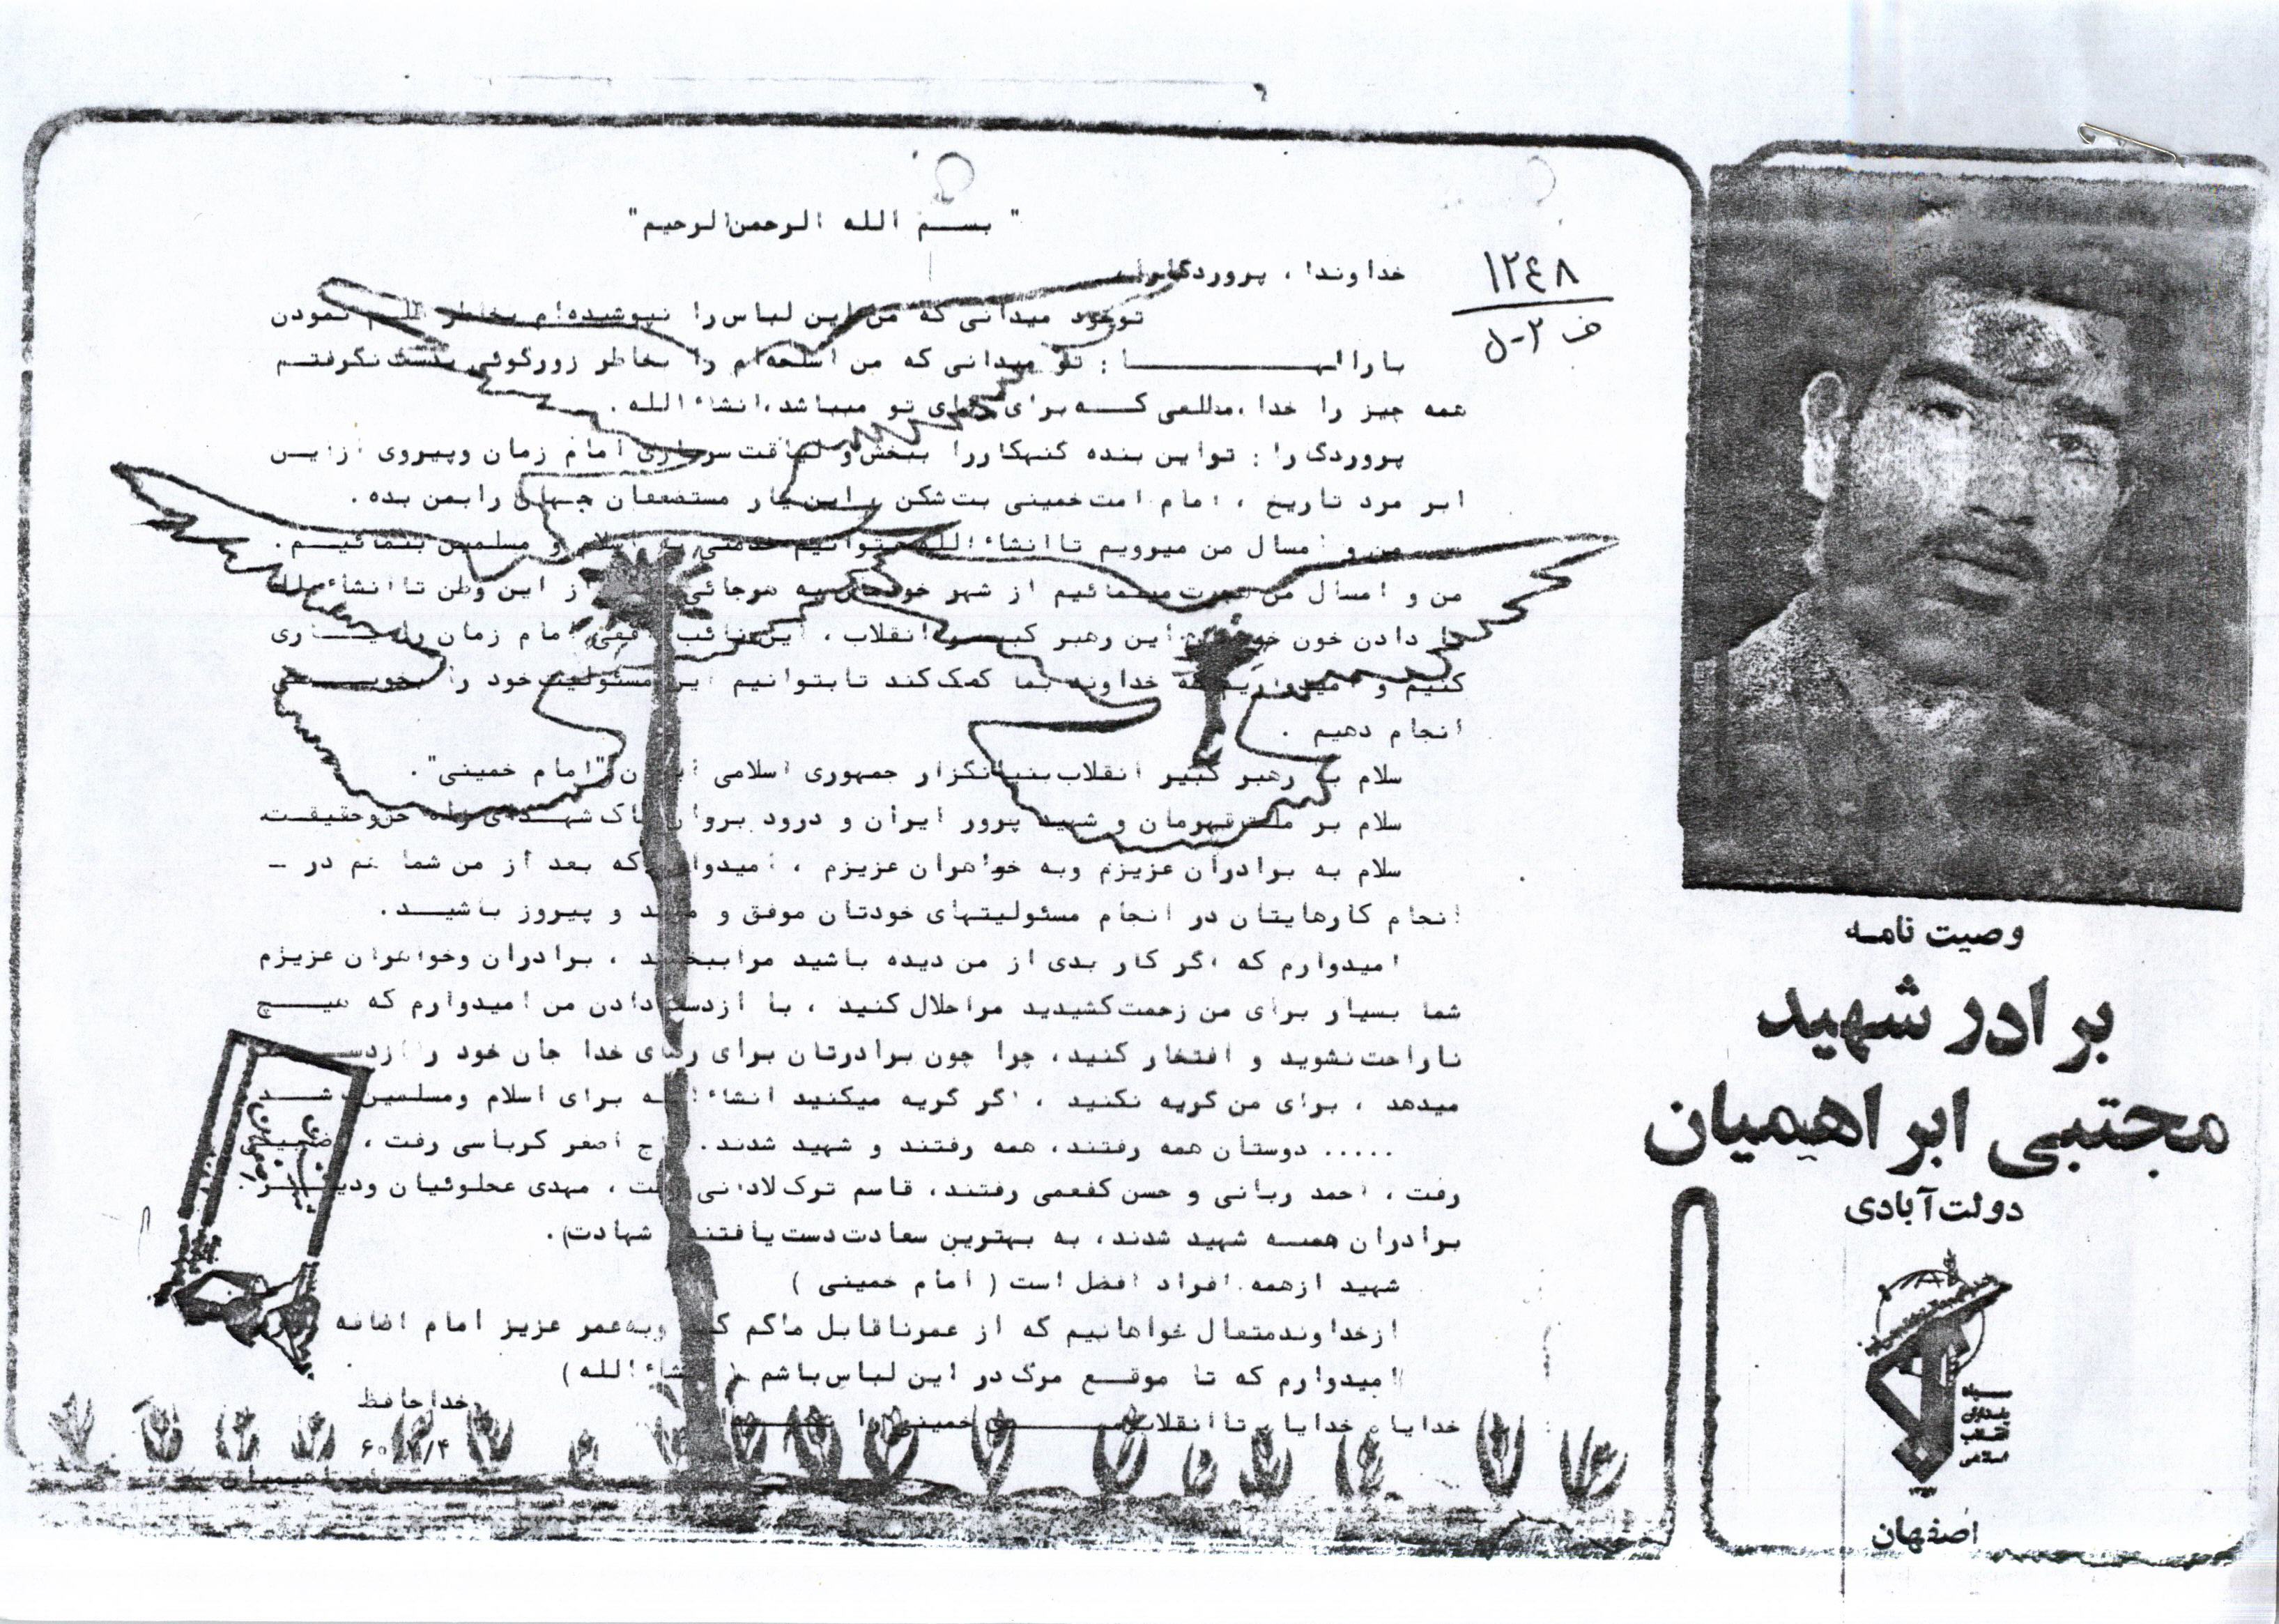 " بسم الله الرحمن الرحیم "
خداوندا ، پروردگارا ،
توخود میدانی که من این لباس را نپوشیده‌ام بخاطر نمودن
بارالها : تو میدانی که من اسلحه‌ام را بخاطر زورگوئی بدست نگرفتم
همه چیز را خدا ، مطلعی که برای تو میباشد ، انشاء الله .
پروردگارا : تو این بنده گنهکار را ببخش و لیاقت سربازی امام زمان و پیروی از این
ابر مرد تاریخ ، امام امت خمینی بت شکن و این یار مستضعفان جهان را بمن بده .
من و امسال من میرویم تا انشاء الله بتوانیم خدمتی به اسلام و مسلمین بنمائیم .
من و امسال من هجرت مینمائیم از شهر خودمان به هرجائی از این وطن تا انشاء الله
با دادن خون خود این رهبر کبیر انقلاب ، این نائب امام زمان را یاری
کنیم و امیدواریم که خداوند بما کمک کند تا بتوانیم این مسئولیت خود را بخوبی
انجام دهیم .
سلام به رهبر کبیر انقلاب بنیانگزار جمهوری اسلامی ایران "امام خمینی" .
سلام بر ملت قهرمان و شهید پرور ایران و درود بروان پاک شهدای راه حق و حقیقت
سلام به برادران عزیزم وبه خواهران عزیزم ، امیدوارم که بعد از من شما هم در -
انجام کارهایتان در انجام مسئولیتهای خودتان موفق و موید و پیروز باشید .
امیدوارم که اگر کار بدی از من دیده باشید مرا ببخشید ، برادران وخواهران عزیزم
شما بسیار برای من زحمت کشیدید مرا حلال کنید ، با از دست دادن من امیدوارم که هیچ
ناراحت نشوید و افتخار کنید ، چرا چون برادرتان برای رضای خدا جان خود را از دست
میدهد ، برای من گریه نکنید ، اگر گریه میکنید انشاء الله برای اسلام ومسلمین باشد
..... دوستان همه رفتند ، همه رفتند و شهید شدند . حاج اصغر کرباسی رفت ،
رفت ، احمد ربانی و حسن کفعمی رفتند ، قاسم ترک لادانی رفت ، مهدی عجلوئیان ودیگر
برادران همه شهید شدند ، به بهترین سعادت دست یافتند ( شهادت ) .
شهید از همه افراد افضل است ( امام خمینی )
از خداوند متعال خواهانیم که از عمر ناقابل ما کم کند و به عمر عزیز امام اضافه
امیدوارم که تا موقع مرگ در این لباس باشم ( انشاء الله )
خدایا ، خدایا ، تا انقلاب مهدی خمینی را
خداحافظ
۶۰/۷/۴
۱۲۴۸
ف ۲-ل
وصیت نامه
برادر شهید
مجتبی ابراهیمیان
دولت آبادی
سپاه
پاسداران
انقلاب
اسلامی
اصفهان